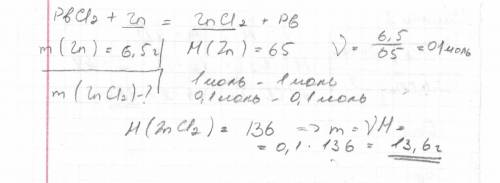 PbCl2 + Zn = ZnCl2 + Pb
m(Zn) = 6,5г M(Zn) = 65 ν = 6,5/65 = 01 моль
m(ZnCl2)-? 1 моль - 1 моль
0,1 моль - 0,1 моль
M(ZnCl2) = 136 => m = νM =
= 0,1 · 136 = 13,6г